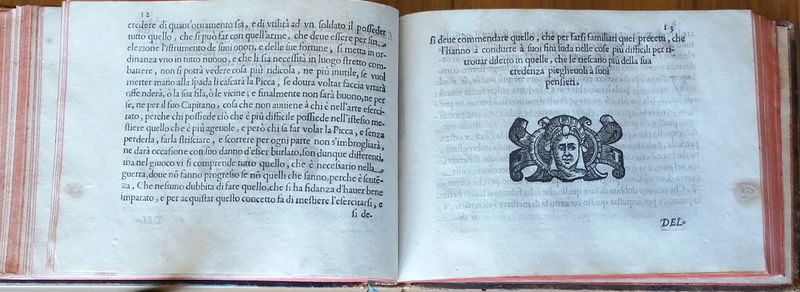 12
credere di quant'ornamento sia, e di vtilità ad vn soldato il posseder
tutto quello, che si può far con quell'arme, che deue essere per sua
elezione l'istrumento de suoi onori, e delle sue fortune, si metta in or-
dinanza vno in tutto nuouo, e che li sia necessità in luogo stretto com-
battere, non si potrà vedere cosa più ridicola, ne più inutile, se vuol
metter mano alla spada li cascarà la Picca, se dourà voltar faccia vrtarà
offenderà, ò la sua fila, ò le vicine; e finalmente non sarà buono, ne per
se, ne per il suo Capitano, cosa che non auuiene à chi è nell'arte eserci-
tato, perche chi possiede ciò che è più difficile possiede nell'istesso me-
stiere quello che è più ageuole, e però chi sa far volar la Picca, e senza
perderla, farla strisciare, e scorrere per ogni parte non s'imbrogliarà,
ne darà occasione con suo danno d'esser burlato, son dunque differenti,
ma nel giuoco vi si comprende tutto quello, che è necessario nella
guerra, doue nõ fanno progresso se nõ quelli che sanno, perche è sentẽ-
za, Che nessuno dubbita di fare quello, che si ha fidanza d'hauer bene
imparato, e per acquistar questo concetto fà di mestiere l'esercitarsi, e
si de-
13
si deue commendare quello, che per farsi familiari quei precetti, che
l'hanno à condurre à suoi fini suda nelle cose più difficili per ri-
trouar diletto in quelle, che le nescano più della sua
credenza piegheuoli à suoi
pensieri.
DEL-